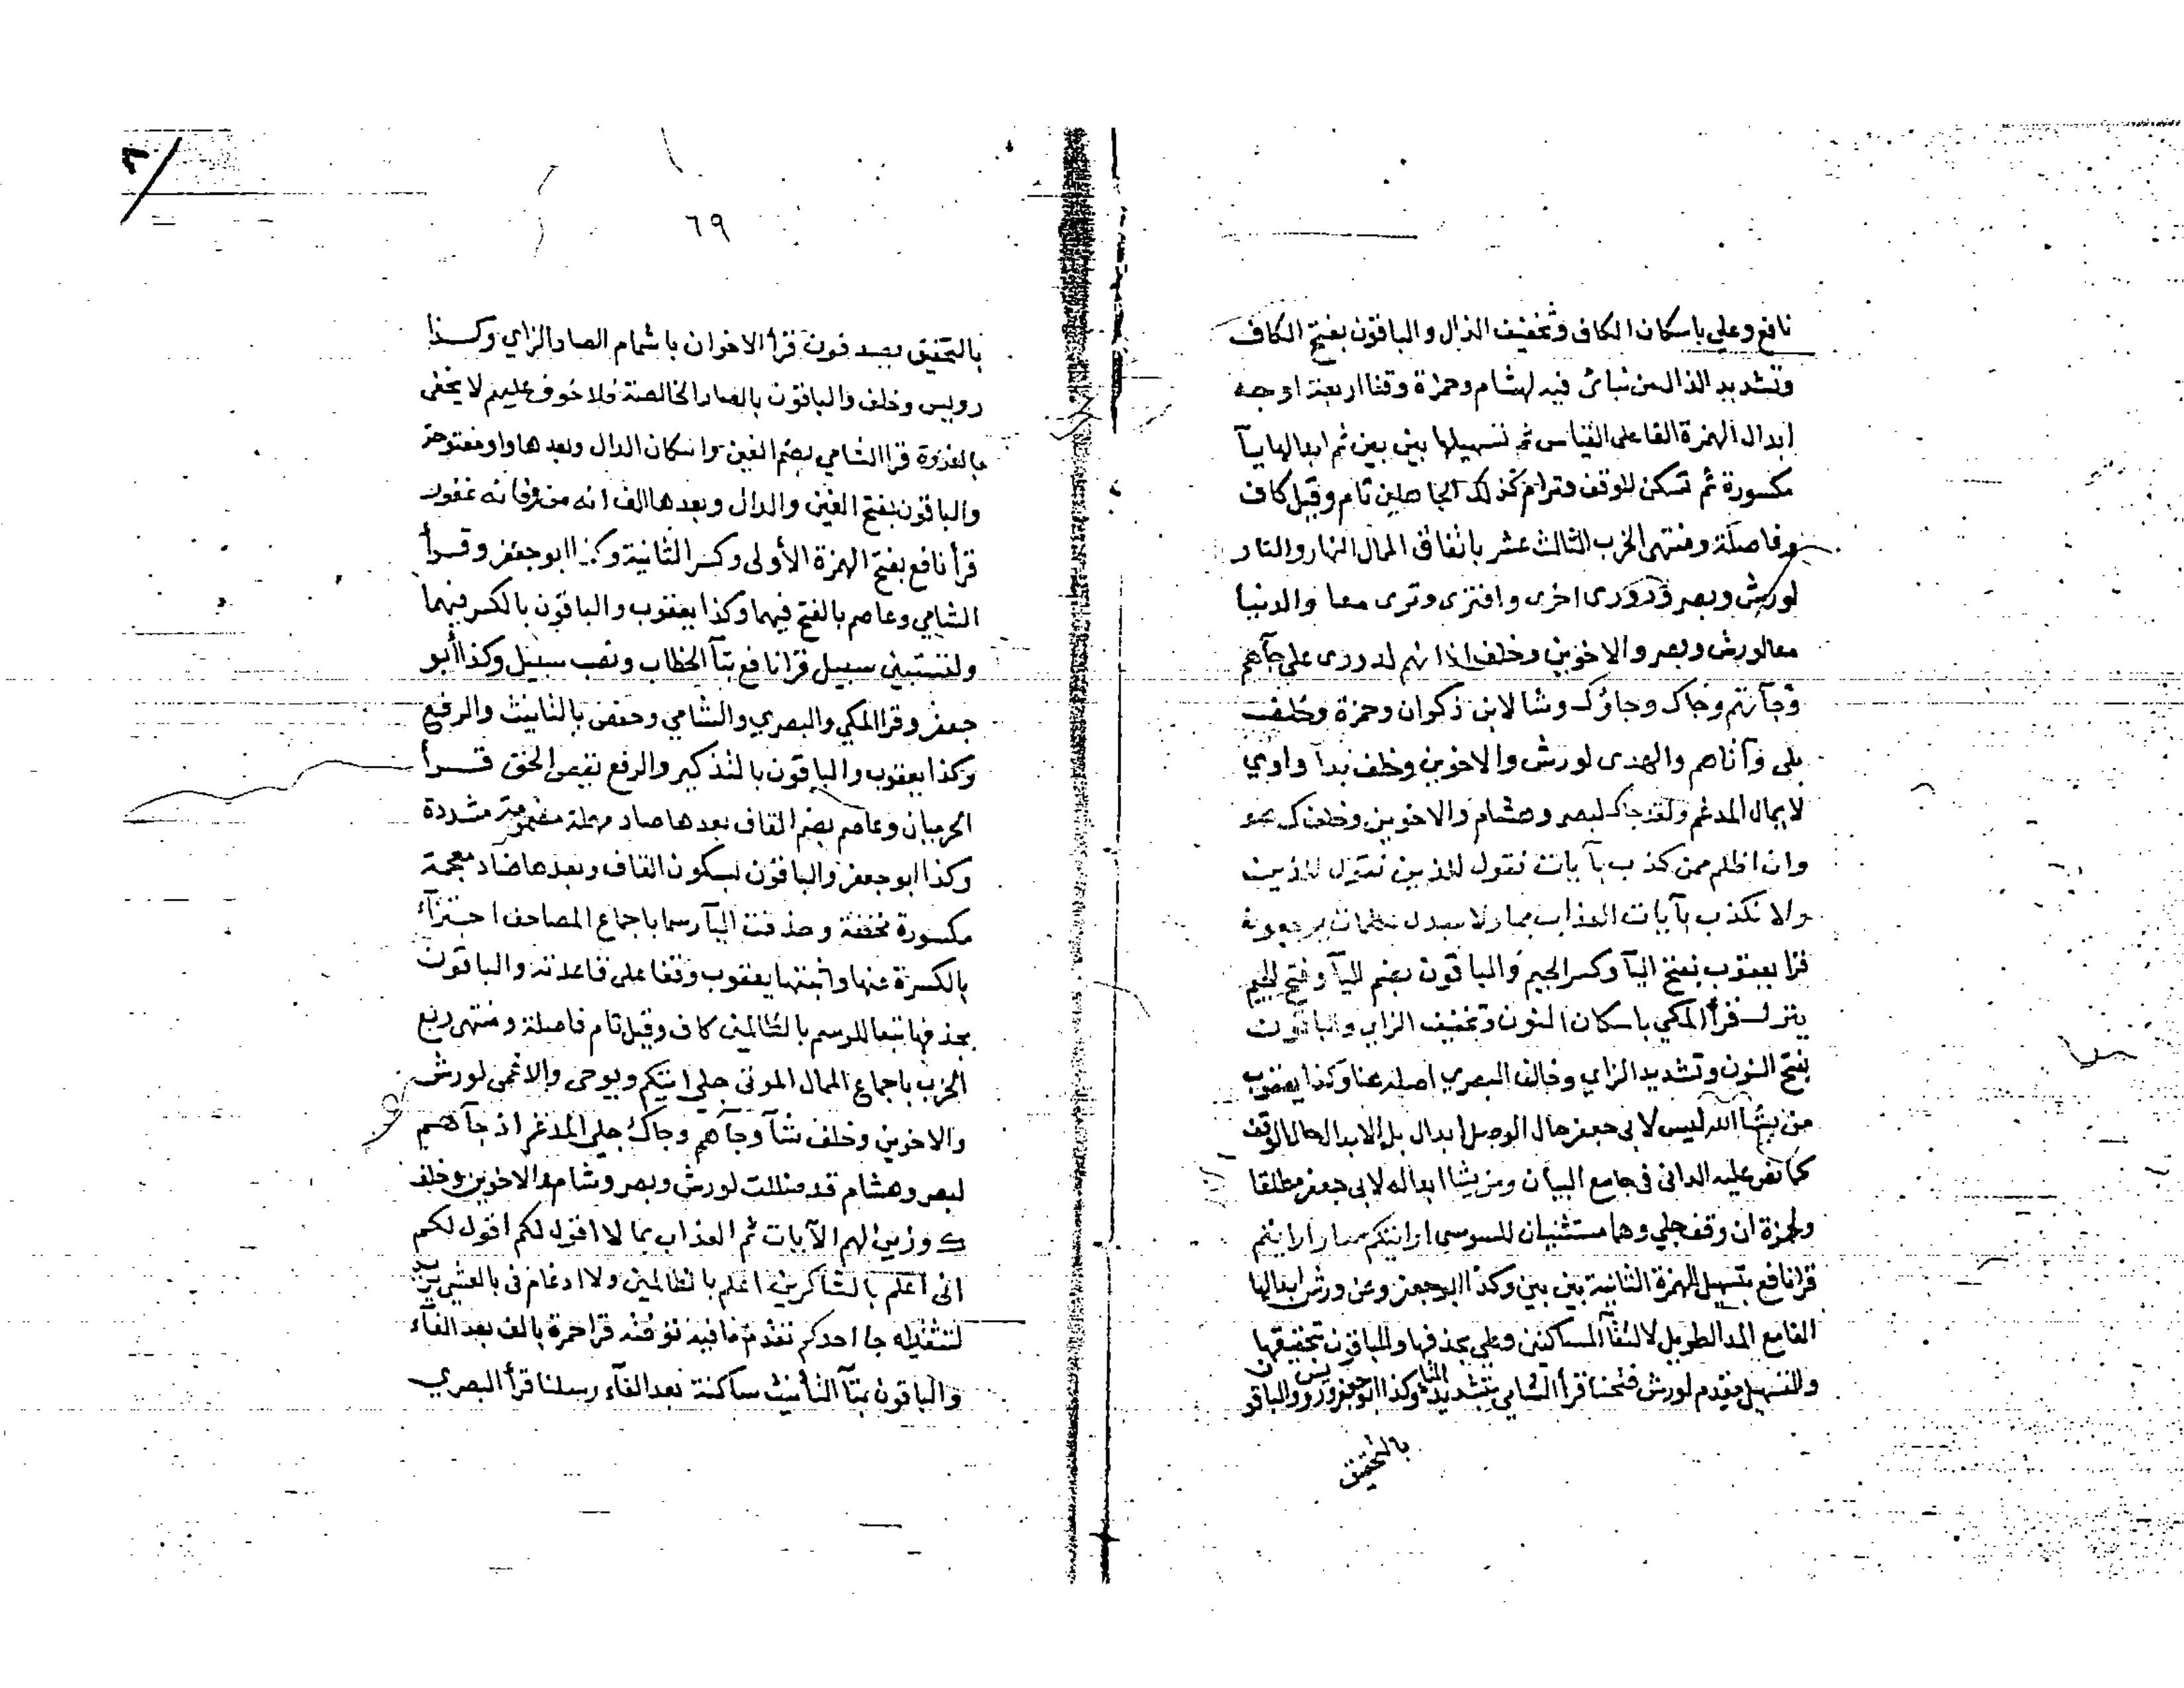 نافع وعلي باسكان الكاف وتخفيف الذال والباقون بفتح الكاف
وتشديد الذال من نبائ فيه لهشام وحمزة وقفا اربعة اوجه
ابدال الهمزة الفا على القياس ثم تسهيلها بين بين ثم ابدالها يآ
مكسورة ثم تسكن للوقف وترام كذلك الجاهلين تام وقيل كاف
وفاصلة ومنتهى الحزب الثالث عشر باتفاق الممال النهار والنار
لورش وبصر ودورى اخرى وافترى وترى معا والدنيا
معا لورش وبصر والاخوين وخلف اذانهم لدورى على جآهم
وجآتهم وجاك وجاؤك وشا لابن ذكوان وحمزة وخلف
بلى وآتاهم والهدى لورش والاخوين وخلف بدآ واوي
لا يمال المدغم ولقد جاك لبصر وهشام والاخوين وخلف ك هو
وان اظلم ممن كذب بآيات نقول للذين نقول للذين
ولا نكذب بآيات العذاب بما ولا مبدل لكلمات يرجعون
قرا يعقوب بفتح اليآ وكسر الجيم والباقون بضم اليآ وفتح الجيم
ينزل قرأ المكي باسكان النون وتخفيف الزاي والباقون
بفتح النون وتشديد الزاي وخالف البصري اصله هنا وكذا يعقوب
من يشا الله ليس لابي جعفر حال الوصل ابدال بل الابدال حال الوقف
كما نص عليه الدانى فى جامع البيان ومن يشا ابداله لابي جعفر مطلقا
ولحمزة ان وقف جلي وهما مستثنيان للسوسي ارايتكم معا وارايتم
قرا نافع بتسهيل الهمزة الثانية بين بين وكذا ابو جعفر وعن ورش ابدالها
الفا مع المد الطويل لالتقآ الساكنين وعلي بحذفها والباقون بتحقيقها
والتسهيل مقدم لورش فتحنا قرأ الشامي بتشديد التا وكذا ابو جعفر ورويس والباقون
بالتخفيف
٦٩
بالتخفيف يصدفون قرأ الاخوان باشمام الصاد الزاي وكذا
رويس وخلف والباقون بالصاد الخالصة فلا خوف عليهم لا يخفى
بالغدوة قرا الشامي بضم الغين واسكان الدال وبعدها واو مفتوحة
والباقون بفتح الغين والدال وبعدها الف انه من وفانه غفور
قرأ نافع بفتح الهمزة الأولى وكسر الثانية وكذا ابو جعفر وقرأ
الشامي وعاصم بالفتح فيهما وكذا يعقوب والباقون بالكسر فيهما
ولتستبين سبيل قرا نافع بتآ الخطاب ونصب سبيل وكذا أبو
جعفر وقرا المكي والبصري والشامي وحفص بالتانيث والرفع
وكذا يعقوب والباقون بالتذكير والرفع يقص الحق قرأ
الحرميان وعاصم بضم القاف بعدها صاد مهملة مضمومة مشددة
وكذا ابو جعفر والباقون بسكون القاف وبعدها ضاد معجمة
مكسورة مخففة وحذفت اليآ رسما باجماع المصاحف اجتزآء
بالكسرة عنها واثبتها يعقوب وقفا على قاعدته والباقون
بحذفها تبعا للرسم بالظالمين كاف وقيل تام فاصلة ومنتهى ربع
الحزب باجماع الممال الموتى جلي اتيكم ويوحى والاعمى لورش
والاخوين وخلف شآ وجآهم وجاك جلي المدغم اذ جآهم
لبصر وهشام قد ضللت لورش وبصر وشام والاخوين وخلف
ك وزين لهم الآيات ثم العذاب بما لا اقول لكم اقول لكم
انى أعلم بالشاكرين اعلم بالظالمين ولا ادغام فى بالعشي يريد
لتثقيله جا احدكم تقدم ما فيه توفته قرا حمزة بالف بعد الفآء
والباقون بتآ التأنيث ساكنة بعد الفآء رسلنا قرأ البصري